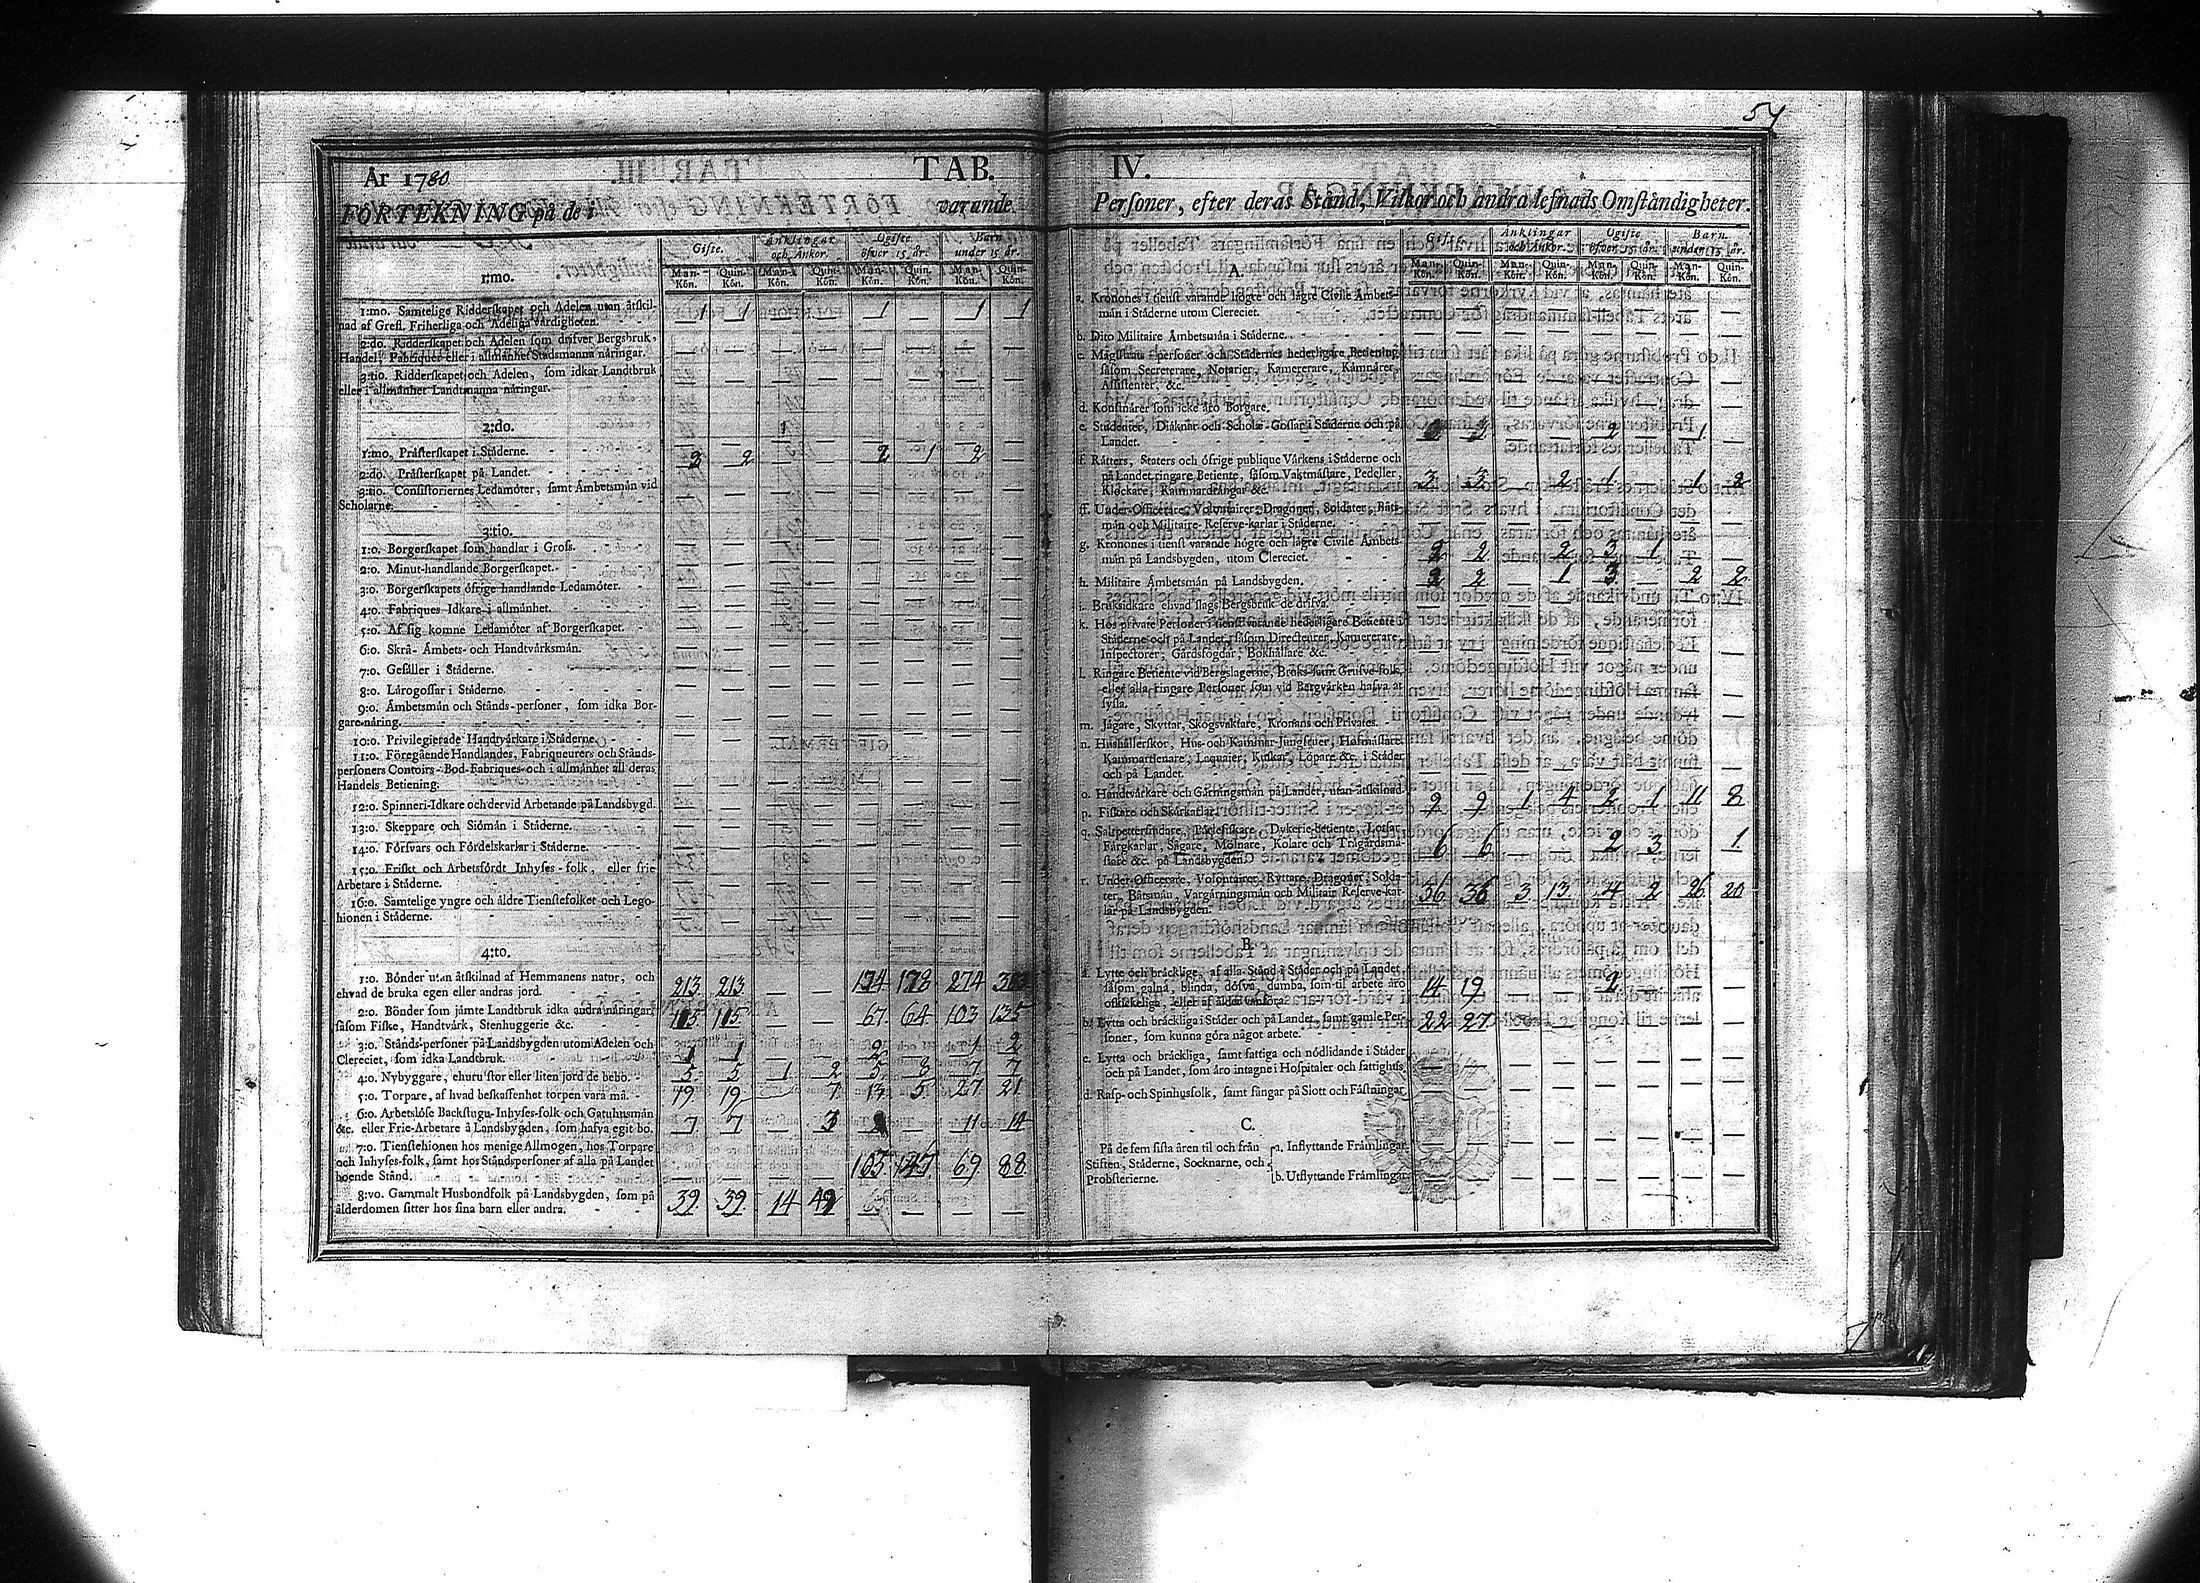 54
År 1780.
TAB. IV.
FÖRTEKNING på de i varande Personer, efter deras Stånd, Vilkor och andra lefnads Omständigheter.
Gifte. Änklingar och Änkor. Ogifte öfver 15 år. Barn under 15 år.
Man-Kön. Quin-Kön. Man-Kön. Quin-Kön. Man-Kön. Quin-Kön. Man-Kön. Quin-Kön.
1:mo.
1:mo. Samtelige Ridderskapet och Adelen utan åtskil-
nad af Grefl. Friherliga och Adeliga värdigheten. 1 1 — — 1 — 1 1
2:do. Ridderskapet och Adelen som drifver Bergsbruk,
Handel, Fabriquer eller i allmänhet Stadsmanna näringar. — — — — — — — —
3:tio. Ridderskapet och Adelen, som idkar Landtbruk
eller i allmänhet Landtmanna näringar. — — — — — — — —
2:do.
1:mo. Prästerskapet i Städerne.
2:do. Prästerskapet på Landet. 2 2 — — 2 1 2 —
3:tio. Consistoriernes Ledamöter, samt Ämbetsmän vid
Scholarne. — — — — — — — —
3:tio.
1:o. Borgerskapet som handlar i Gross. — — — — — — — —
2:o. Minut-handlande Borgerskapet. — — — — — — — —
3:o. Borgerskapets öfrige handlande Ledamöter. — — — — — — — —
4:o. Fabriques Idkare i allmänhet. — — — — — — — —
5:o. Af sig komne Ledamöter af Borgerskapet. — — — — — — — —
6:o. Skrå- Ämbets- och Handtvärksmän. — — — — — — — —
7:o. Gesäller i Städerne. — — — — — — — —
8:o. Lärogossar i Städerne. — — — — — — — —
9:o. Ämbetsmän och Stånds-personer, som idka Bor-
gare-näring. — — — — — — — —
10:o. Privilegierade Handtvärkare i Städerne. — — — — — — — —
11:o. Föregående Handlandes, Fabriqueurers och Stånds-
personers Contoirs- Bod-Fabriques- och i allmänhet all deras
Handels Betiening. — — — — — — — —
12:o. Spinneri-Idkare och dervid Arbetande på Landsbygd. — — — — — — — —
13:o. Skeppare och Siömän i Städerne. — — — — — — — —
14:o. Försvars och Fördelskarlar i Städerne. — — — — — — — —
15:o. Friskt och Arbetsfördt Inhyses-folk, eller frie
Arbetare i Städerne. — — — — — — — —
16:o. Samtelige yngre och äldre Tienstefolket och Lego-
hionen i Städerne. — — — — — — — —
4:to.
1:o. Bönder utan åtskilnad af Hemmanens natur, och
ehvad de bruka egen eller andras jord. 213 213 — — 274
2:o. Bönder som jämte Landtbruk idka andra näringar,
såsom Fiske, Handtvärk, Stenhuggerie &c. — — 67 64 103 135
3:o. Stånds-personer på Landsbygden utom Adelen och
Clereciet, som idka Landtbruk. 1 1 — — 2 — 1 2
4:o. Nybyggare, ehuru stor eller liten jord de bebo. 5 5 1 2 5 3 7 7
5:o. Torpare, af hvad beskaffenhet torpen vara må. 19 19 — 7 13 5 27 21
6:o. Arbetslöse Backstugu-Inhyses-folk och Gatuhusmän
&c. eller Frie-Arbetare å Landsbygden, som hafva egit bo. 7 7 — 3 — 11 14
7:o. Tienstehionen hos menige Allmogen, hos Torpare
och Inhyses-folk, samt hos Ståndspersoner af alla på Landet
boende Stånd. — — — — 69 88
8:vo. Gammalt Husbondfolk på Landsbygden, som på
ålderdomen sitter hos sina barn eller andra. 39 39 14 — — — —
Gifte. Änklingar och Änkor. Ogifte öfver 15 år. Barn under 15 år.
Man-Kön. Quin-Kön. Man-Kön. Quin-Kön. Man-Kön. Quin-Kön. Man-Kön. Quin-Kön.
A.
a. Kronones i tienst varande högre och lägre Civile Ämbets-
män i Städerne utom Clereciet. — — — — — — — —
b. Dito Militaire Ämbetsmän i Städerne. — — — — — — — —
c. Magistrats-personer och Städernes hederligare Betiening
såsom Secreterare, Notarier, Kamererare, Kämnärer,
Assistenter, &c. — — — — — — — —
d. Konstnärer som icke äro Borgare. — — — — — — — —
e. Studenter, Diäknar och Schole-Gossar i Städerne och på
Landet. — — 2 — 1 —
f. Rätters, Staters och öfrige publique Värkens i Städerne och
på Landet ringare Betiente, såsom Vaktmästare, Pedeller,
Klockare, Kammardrängar &c. 3 3 — 2 1 — 1 2
ff. Under-Officerare, Volontairer, Dragoner, Soldater, Båts-
män och Militaire-Reserve-karlar i Städerne. — — — — — — — —
g. Kronones i tienst varande högre och lägre Civile Ämbets-
män på Landsbygden, utom Clereciet. 2 2 — 2 3 1 — —
h. Militaire Ämbetsmän på Landsbygden. 2 2 — 1 3 — 2 2
i. Bruksidkare ehvad slags Bergsbruk de drifva. — — — — — — — —
k. Hos privare Personer i tienst varande hederligare Betiente i
Städerne och på Landet, såsom Directeurer, Kamererare,
Inspectorer, Gårdsfogdar, Bokhållare &c. — — — — — — — —
l. Ringare Betiente vid Bergslagerne, Bruks- samt Grufve-folk,
eller alla ringare Personer som vid Bergvärken hafva at
syssla. — — — — — — — —
m. Jägare, Skyttar, Skogsvaktare, Kronans och Privates. — — — — — — — —
n. Hushållerskor, Hus- och Kammar-Jungfruer, Hofmästare,
Kammartienare, Laquaier, Kuskar, Löpare &c. i Städer
och på Landet. — — — — — — — —
o. Handtvärkare och Gärningsmän på Landet, utan åtskilnad. 9 9 1 4 2 1 11 8
p. Fiskare och Skärkarlar.
q. Saltpettersiudare, Pärlefiskare, Dykerie-betiente, Lotsar,
Färgkarlar, Sågare, Mölnare, Kolare och Trägårdsmä-
stare &c. på Landsbygden. 6 6 — — 2 3 — 1
r. Under-Officerare, Volontairer, Ryttare, Dragoner, Solda-
ter, Båtsmän, Vargärningsmän och Militair Reserve-kar-
lar på Landsbygden. 36 36 3 13 4 2 26 20
B.
a. Lytte och bräcklige, af alla Stånd i Städer och på Landet
såsom galna, blinda, döfva, dumba, som til arbete äro
oskickeliga, eller af ålder vanföra. 14 19 — — 2 — — —
b. Lytta och bräckliga i Städer och på Landet, samt gamle Per-
soner, som kunna göra något arbete. 22 27 — — — — — —
c. Lytta och bräckliga, samt fattiga och nödlidande i Städer
och på Landet, som äro intagne i Hospitaler och fattighus. — — — — — — — —
d. Rasp- och Spinhusfolk, samt fångar på Slott och Fästningar. — — — — — — — —
C.
På de fem sista åren til och från
Stiften, Städerne, Socknarne, och
Probsterierne.
a. Inflyttande Främlingar — — — — — — — —
b. Utflyttande Främlingar — — — — — — — —